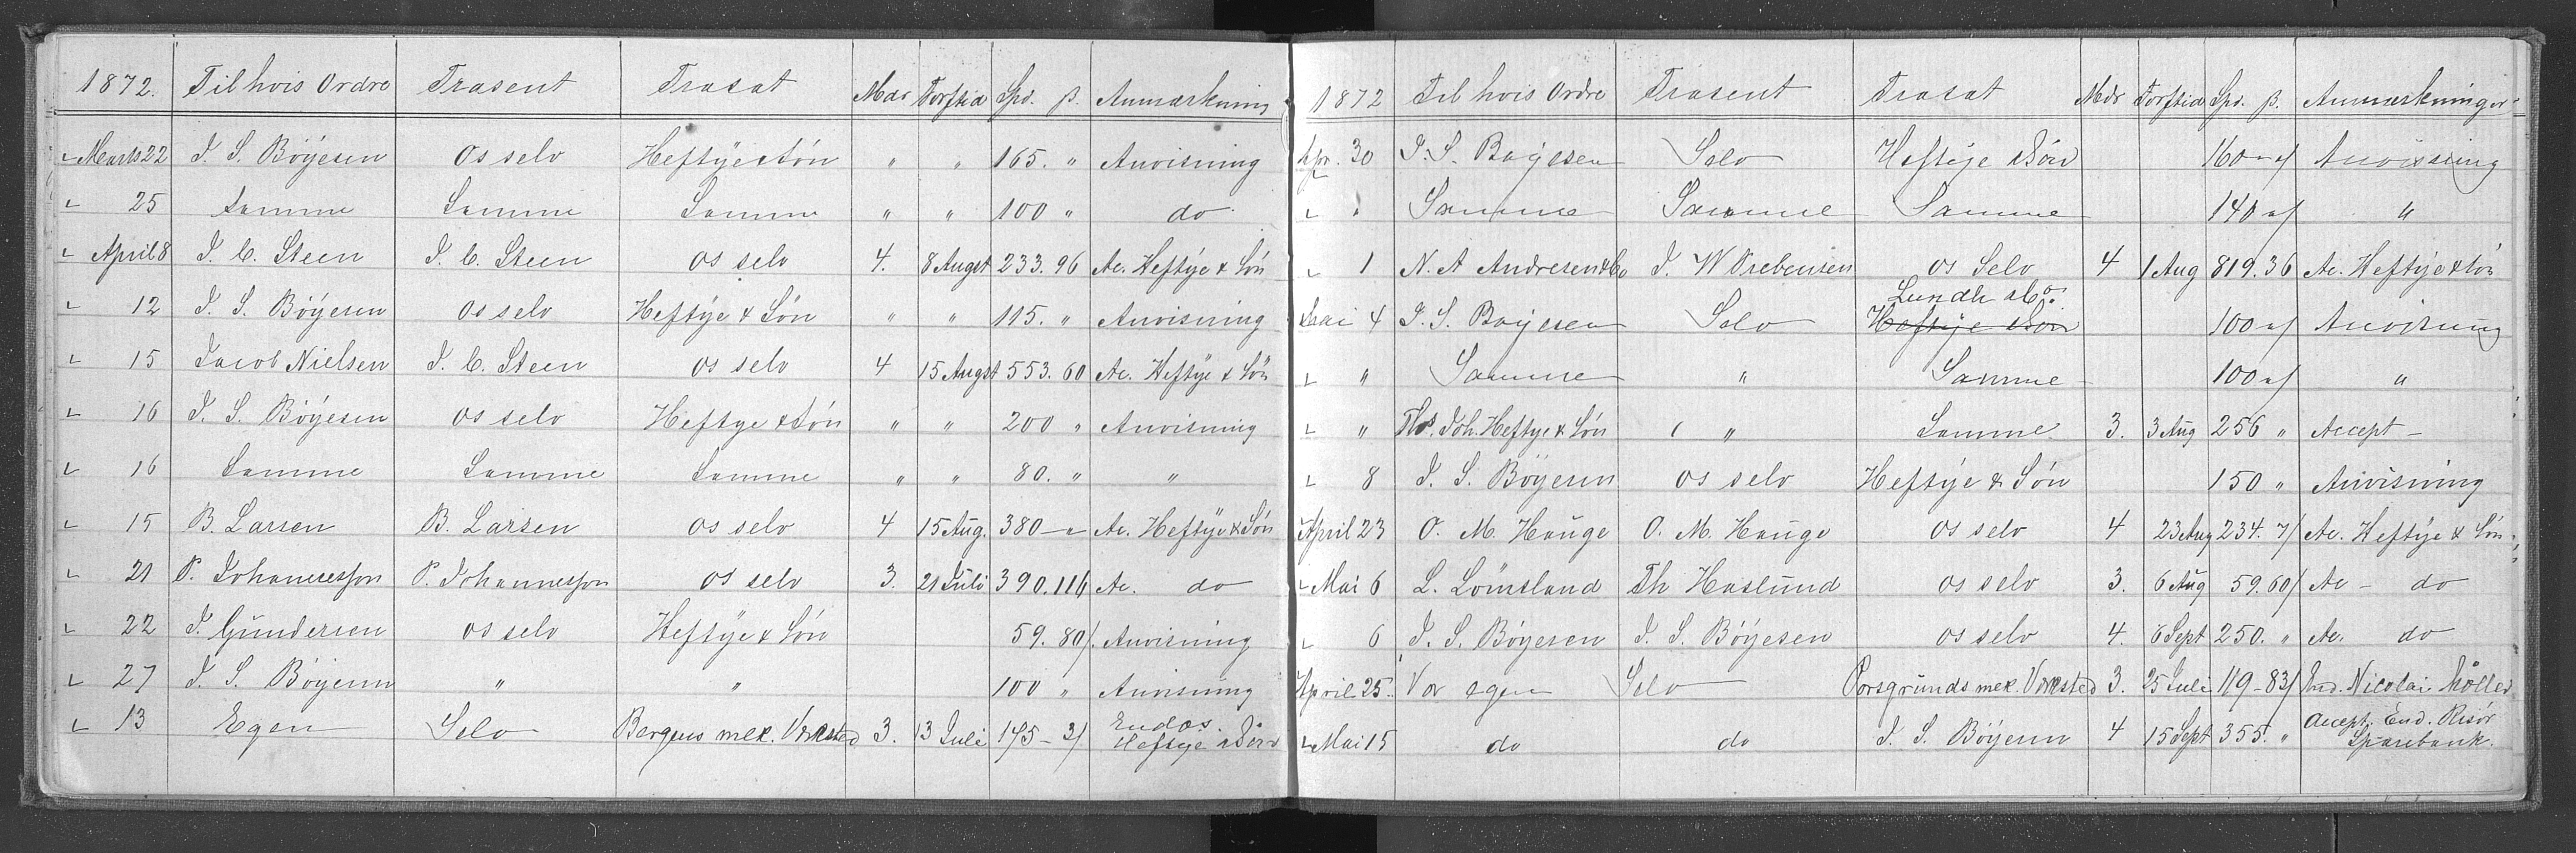 1872. Til hvis Ordre Trasent Trasat Mdr Forftid Spd. β. Anmærkning
Marts 22 J. S. Böyesen os selv Heftye & Søn " " 165. " Anvisning
" 25 Samme Samme Samme " " 100 " do
" April 8 J. C. Steen J. C. Steen os selv 4. 8 Augst 233. 96 Ac. Heftye & Søn
" 12 J. S. Böyesen os selv Heftye & Søn " " 115. " Anvisning
" 15 Jacob Nielsen J. C. Steen os selv 4 15 Augst 553. 60 Ac. Heftye & Søn
" 16 J. S. Böyesen os selv Heftye & Søn " " 200 " Anvisning
" 16 Samme Samme Samme " " 80. " "
" 15 B. Larsen B. Larsen os selv 4 15 Aug. 380 - " Ac. Heftye & Søn
" 21 P. Johannessen P. Johannessen os selv 3. 21 Juli 390. 116 Ac. do
" 22 J. Gundersen os selv Heftye & Søn 59. 80/. Anvisning
" 27 J. S. Böyesen " " 100 " Anvisning
" 13 Egen Selv Bergens mek. Verksted 3. 13 Juli 175 - 21 Endos. Heftye & Søn
1872 Til hvis Ordre Trasent Trasat Mdr Forftid Spd. β. Anmærkninger
Apr. 30 J. S. Bøyesen Selv Heftye & Søn 160 " Anvisning
" " Samme Samme Samme 140 " "
" 1 N. A Andresen & Co J. W Prebensen os Selv 4 1 Aug 819. 36 Ac. Heftye & Søn
Lundh & Co.
Mai 4 J. S. Bøyesen Selv Heftye & Søn 100 " Anvisning
" " Samme " Samme 100 " "
" " Thos. Joh. Heftye & Søn " Samme 3. 3 Aug 256 " Accept -
" 8 J. S. Böyesen os selv Heftye & Søn 150 " Anvisning
April 23 O. M. Hauge O. M. Hauge os selv 4 23 Aug 234. 7/ Ac. Heftye & Søn
" Mai 6 L. Lömsland Th Haslund os selv 3. 6 Aug 59. 60/ Ac - do
" 6 J. S. Böyesen J. S. Böyesen os selv 4. 6 Sept 250. " Ac. do
April 25. Vor egen Selv Porsgrunds mek. Verksted 3. 25 Juli 119 - 83/ End. Nicolai Møller
" Mai 15 do do J. S. Böyesen 4 15 Sept 355. " Accept. End. Risör Sparebank.